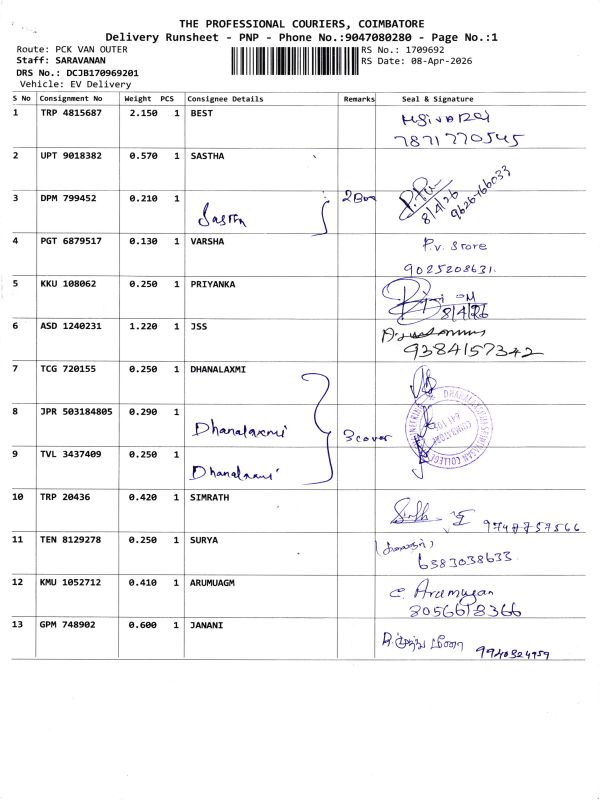 THE PROFESSIONAL COURIERS, COIMBATORE
Delivery Runsheet - PNP - Phone No.:9047080280 - Page No.:1
Route: PCK VAN OUTER RS No.: 1709692
Staff: SARAVANAN RS Date: 08-Apr-2026
DRS No.: DCJB170969201
Vehicle: EV Delivery
S No Consignment No Weight PCS Consignee Details Remarks Seal & Signature
1 TRP 4815687 2.150 1 BEST
7871770545
2 UPT 9018382 0.570 1 SASTHA
3 DPM 799452 0.210 1 Sastha 2 Box 8/4/26 9626766033
4 PGT 6879517 0.130 1 VARSHA P.V. Store
9025208631.
5 KKU 108062 0.250 1 PRIYANKA
8/4/26
6 ASD 1240231 1.220 1 JSS
9384157342
7 TCG 720155 0.250 1 DHANALAXMI
8 JPR 503184805 0.290 1 Dhanalaxmi 3 cover
9 TVL 3437409 0.250 1 Dhanalaxmi
10 TRP 20436 0.420 1 SIMRATH
9747757566
11 TEN 8129278 0.250 1 SURYA
6383038633
12 KMU 1052712 0.410 1 ARUMUAGM C. Arumugan
8056618366
13 GPM 748902 0.600 1 JANANI
9940324959